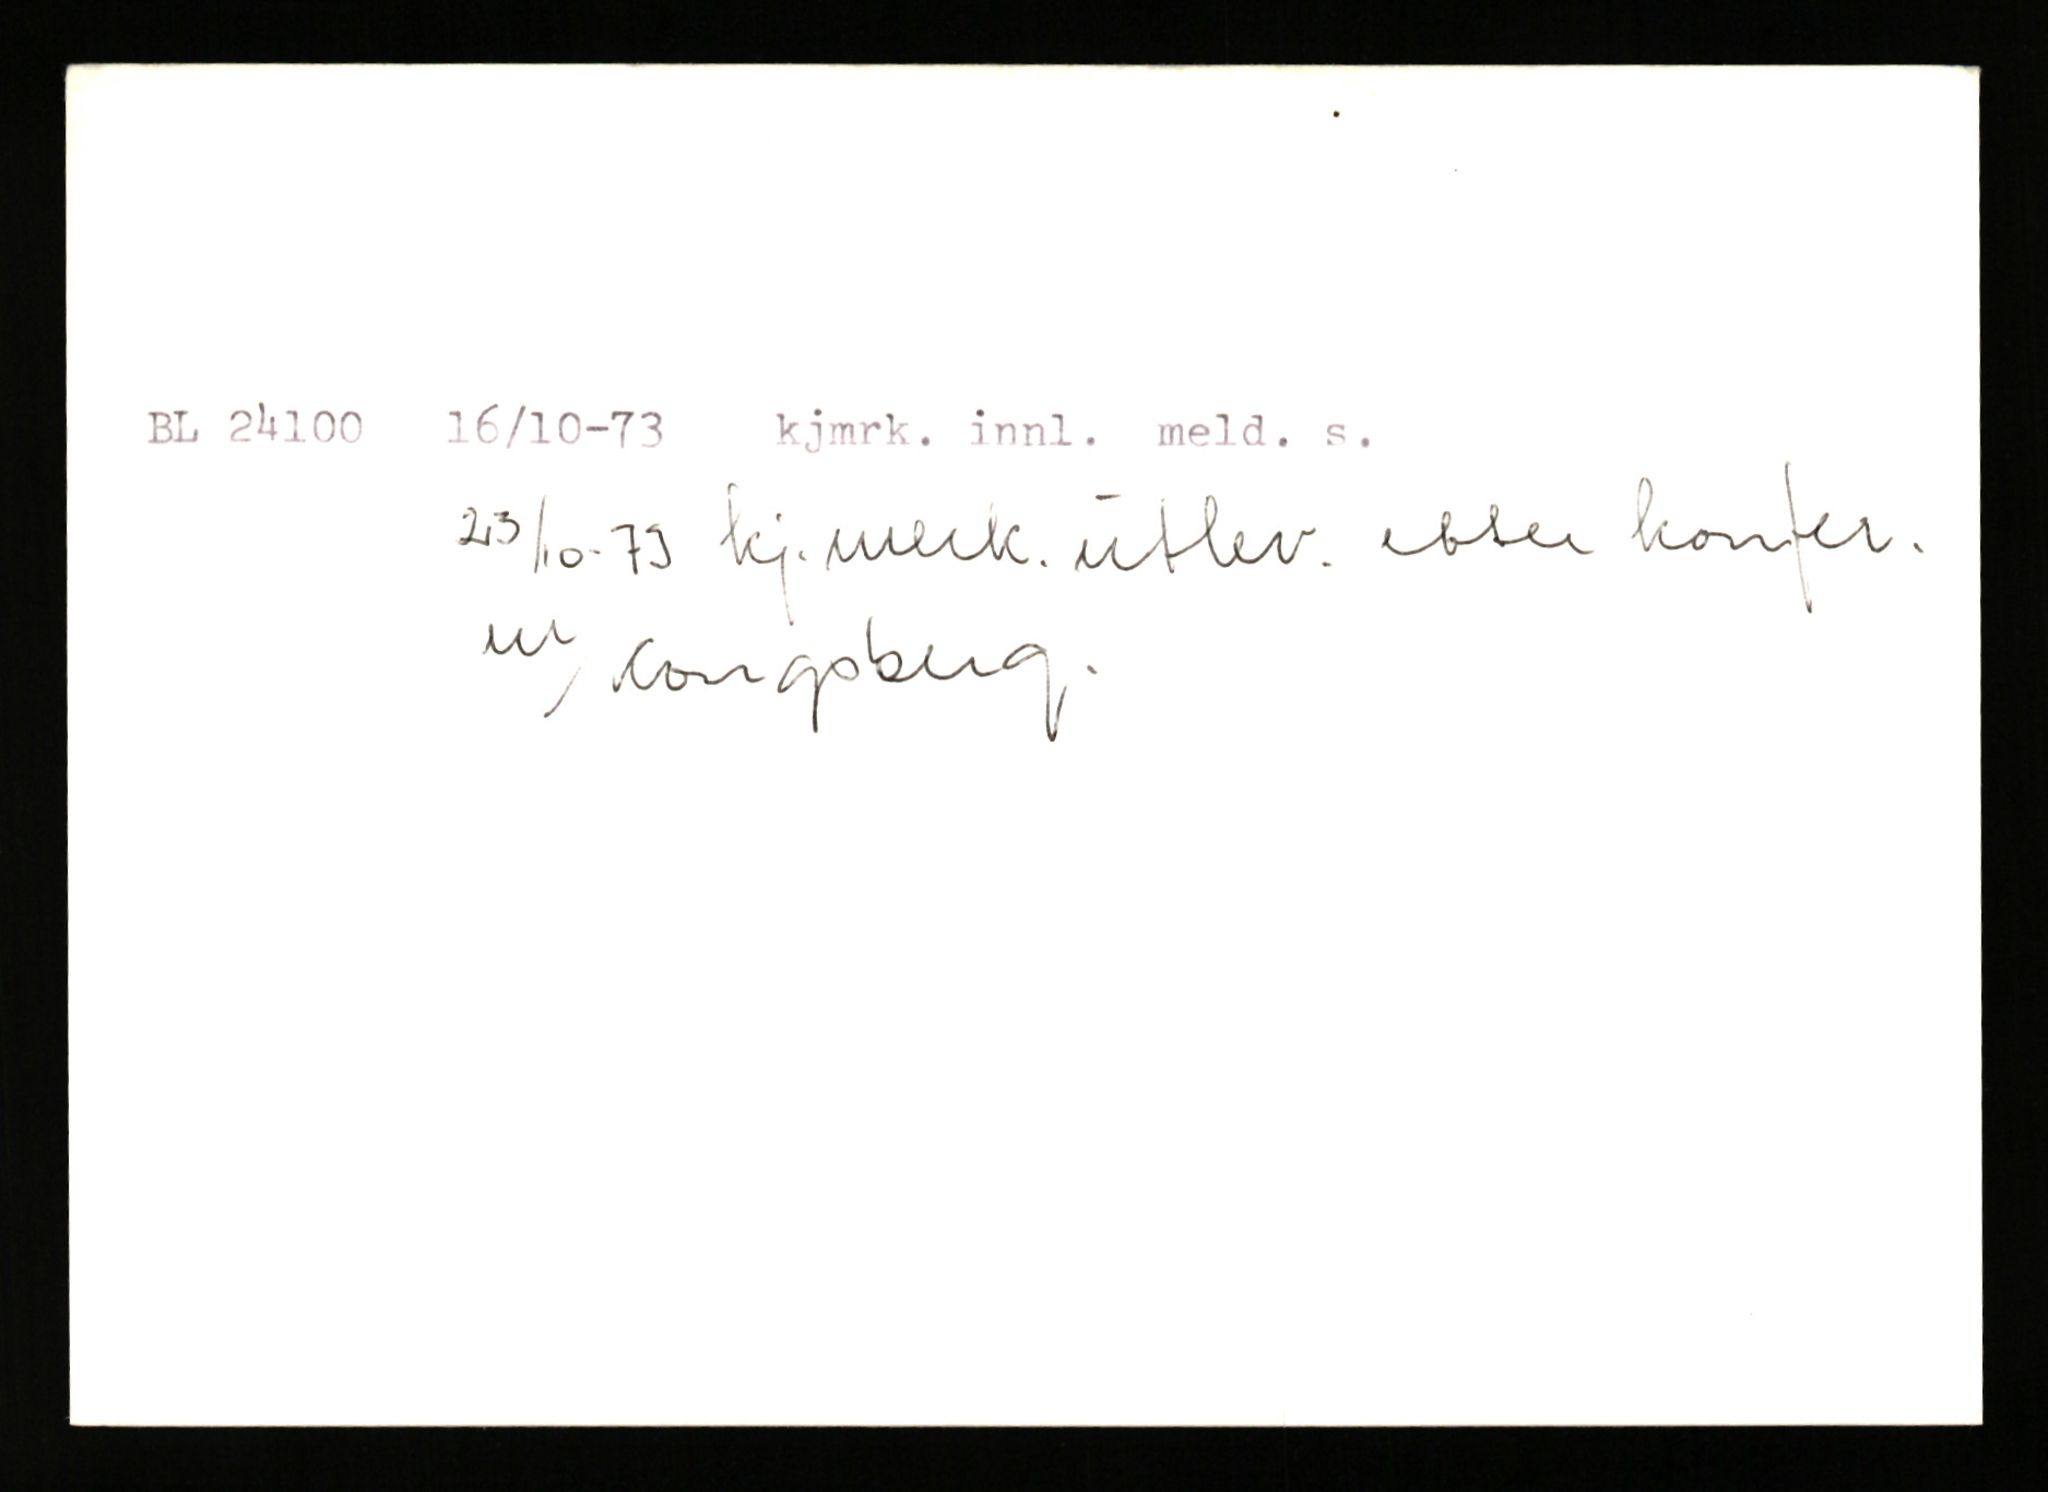 BL 24100 16/10-73 kjmrk. innl. meld. s.
23/10-73 kj.merk. utlev. etter konfer.
m/ Kongsberg.